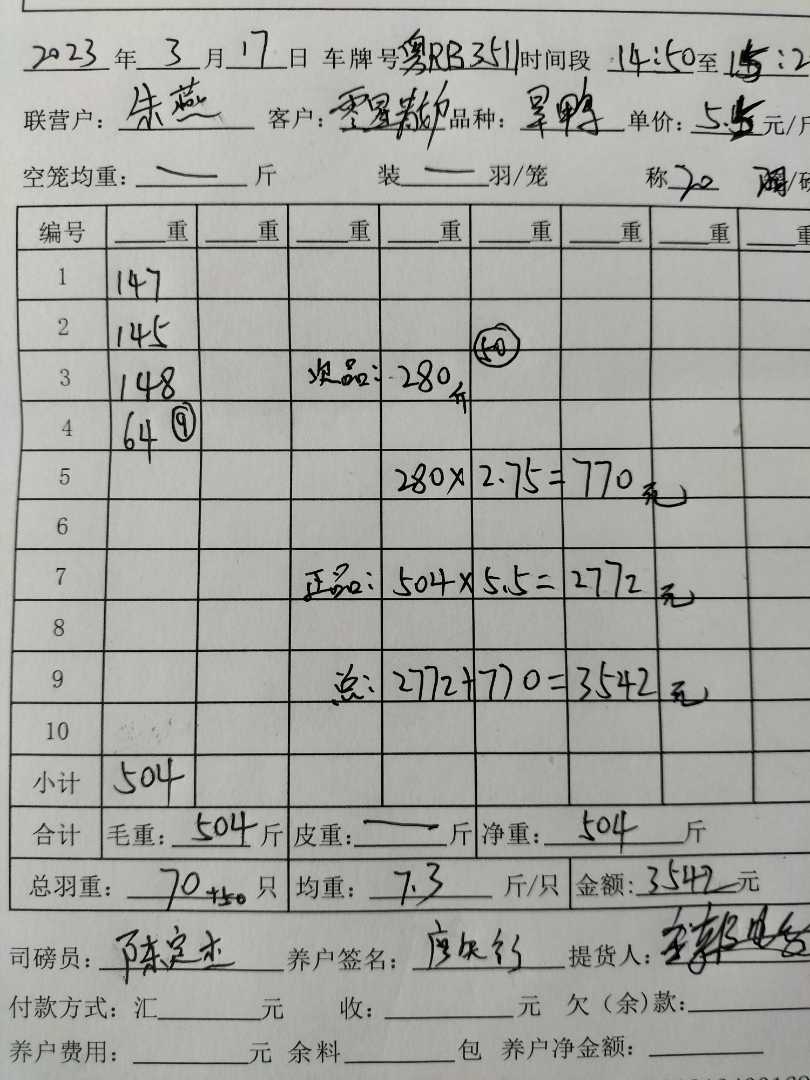 2023 年 3 月 17 日 车牌号 粤RB3511 时间段 14:50 至
联营户: 朱燕 客户: 零星 品种: 旱鸭 单价: 5.5 元/斤
空笼均重: — 斤 装 — 羽/笼 称 20
编号 重 重 重 重 重 重 重 重
1 147
2 145 50
3 148 次品: 280斤
4 64 9
5 280×2.75=770元
6
7 正品: 504×5.5=2772元
8
9 总: 2772+770=3542元
10
小计 504
合计 毛重: 504 斤 皮重: — 斤 净重: 504 斤
总羽重: 70+50 只 均重: 7.3 斤/只 金额: 3542 元
司磅员: 陈定杰 养户签名: 提货人:
付款方式: 汇 元 收: 元 欠（余)款:
养户费用: 元 余料 包 养户净金额: